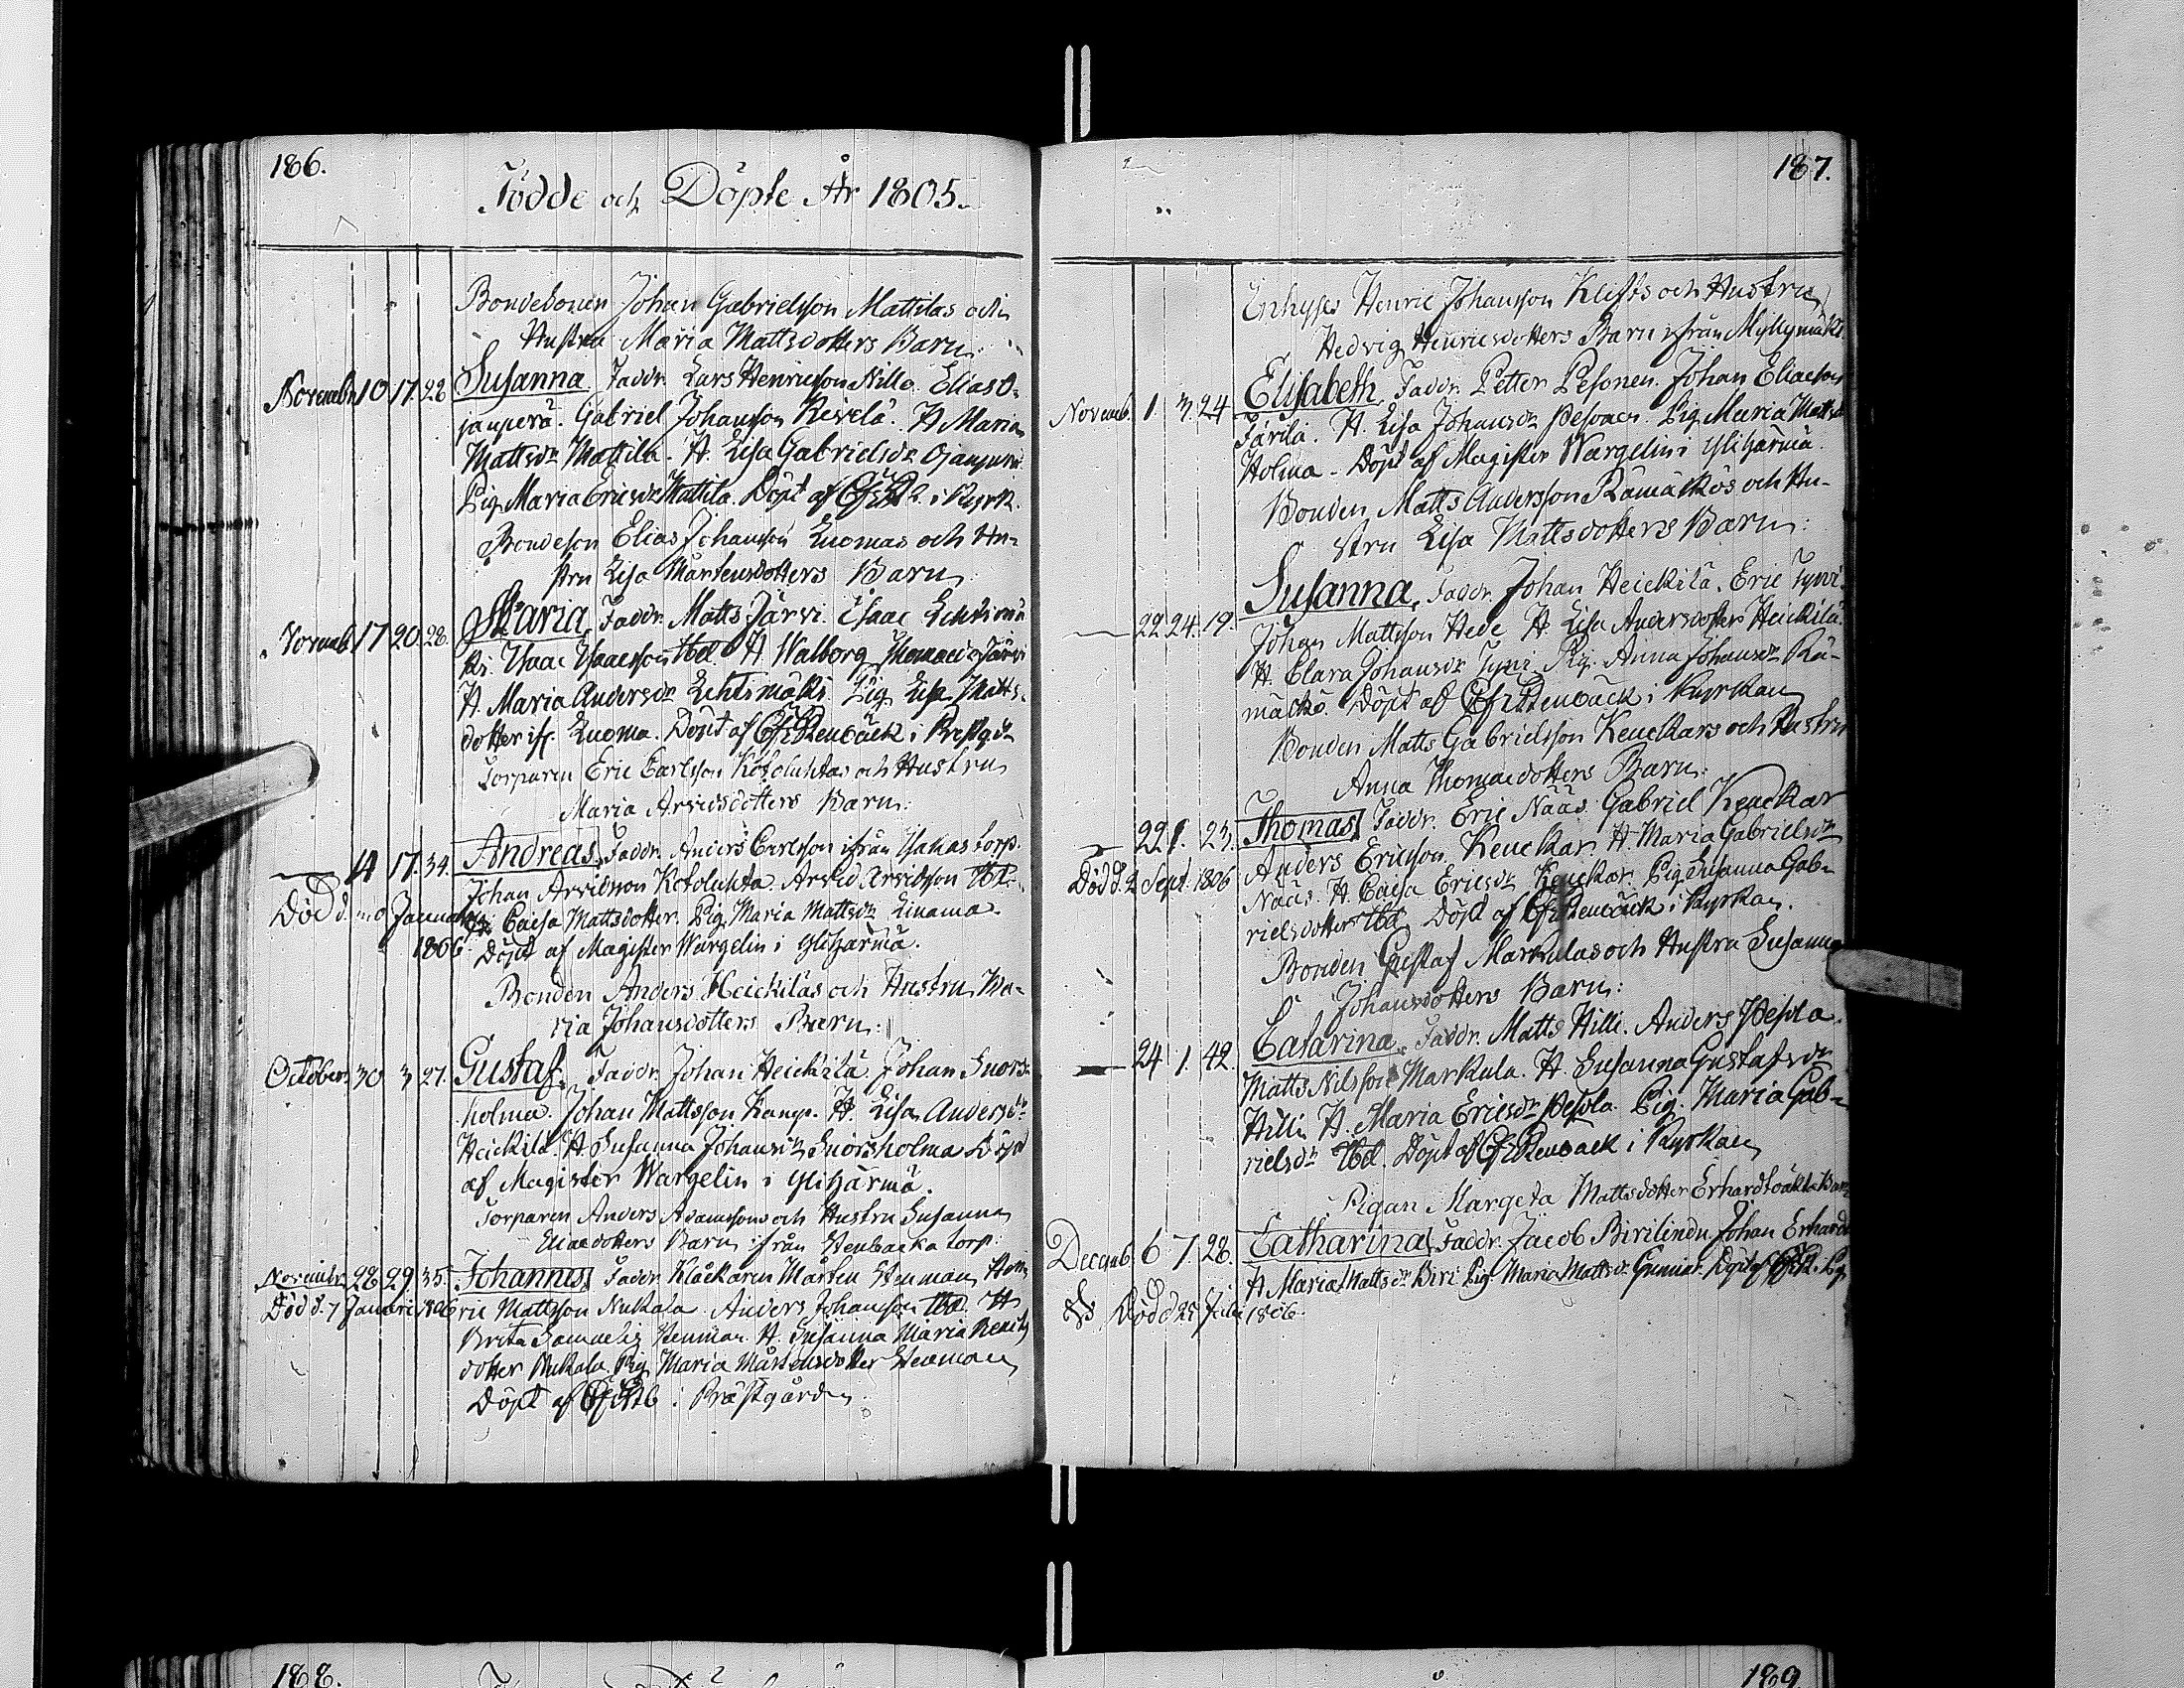 186.
Födde och Döpte År 1805.
Bondesonen Johan Gabrielsson Mattilas och
Hustru Maria Mattsdotters Barn:
Novembr 10 17. 28 Susanna. Faddr. Lars Henricsson Nille. Elias O-
janperä. Gabriel Johansson Kivelä. H. Maria
Mattsdr Mattila. H. Lisa Gabrielsdr Ojanperä
Pig. Maria Ericsdr Mattila. Döpt af i Kyrk.
Bondeson Elias Johansson Luomas och Hu-
stru Lisa Mårtensdotters Barn
Novemb. 17 20. 28. Maria, Faddr. Matts Järvi. Isaac Lehtimä
ki. Isaac Isaacsson Ibd. H. Walborg Thomaedr Järvi
H. Maria Andersdr Lehtimäki. Pig. Lisa Matts-
dotter ifr. Luoma. Döpt af i Prestgdn
Torparen Eric Carlsson Kotoluhtas och Hustru
Maria Arvidsdotters Barn:
14 17. 34. Andreas, Faddr. Anders Carlsson ifrån torp.
Johan Arvidsson Kotoluhta. Arvid Arvidsson Ibd.
Död Januari Caisa Mattsdotter. Pig. Maria Mattsdr Linama.
1806 Döpt af Magister Wargelin i Ylihärmä.
Bonden Anders Heickiläs och Hustru Ma-
ria Johansdotters Barn:
October 30 3 27. Gustaf. Faddr. Johan Heickilä. Johan Snors-
holma. Johan Mattsson Kamp. H. Lisa Andersdr
Heickilä. H. Susanna Johansdr Snorsholma Döpt
af Magister Wargelin i Ylihärmä.
Torparen Anders Adamssons och Hustru Susanna
Eliaedotters Barn ifrån Stenbacka torp:
Novembr 28 29. 35. Johannes, Faddr. Klåckaren Mårten Stenman, Hen-
Död d. 7 Januari 1806 ric Mattsson Nukala. Anders Johansson Ibd. H.
Brita Stenman. H. Susanna Maria
dotter Nukala. Pig. Maria Mårtensdotter Stenman
Döpt af i Prästgården
187.
Inhyses Henric Johansson Klifts och Hustru
Hedvig Henricsdotters Barn ifrån Myllymäki
Novemb. 1. 3. 24 Elisabeth, Faddr. Petter Pesonen. Johan Eliaeson
Järilä. H. Lisa Johansdr Pesonen. Pig. Maria Mattsd
Holma. Döpt af Magister Wargelin i Ylihärmä.
Bonden Matts Andersson Rämäckös och Hu-
stru Lisa Mattsdotters Barn:
22 24. 19. Susanna, Faddr. Johan Heickilä. Eric Tyni.
Johan Mattsson Hede H. Lisa Andersdotter Heickilä.
H. Clara Johansdr Tyni. Pig. Anna Johansdr Rä-
mäckö. Döpt af i Kyrkan
Bonden Matts Gabrielsson Keuckars och Hustru
Anna Thomaedotters Barn:
22 1. 23. Thomas, Faddr. Eric Nääs Gabriel Keuckar
Död d. 2 Sept. 1806 Anders Ericsson Keuckar. H. Maria Gabrielsdr
Nääs. H. Caisa Ericsdr Keuckar. Pig. Susanna Gab-
rielsdotter Ibd. Döpt af i Kyrkan.
Bonden Gustaf Markulas och Hustru Susanna
Johansdotters Barn:
24 1. 42. Catarina. Faddr. Matts Hilli. Anders Pesola.
Matts Nilsson Markula. H. Susanna Gustafsdr
Hilli H. Maria Ericsdr Pesola. Pig. Maria Gab-
rielsdr Ibd. Döpt af i Kyrkan
Pigan Margeta Mattsdotter Erhardt oäkta Barn
Decemb. 6 7. 28. Catharina, Faddr. Jacob Johan Erhardt
H. Maria Mattsdr Biri Pig. Maria Mattsdr Döpt af
Död d 25 Julii 1806.
188.
189.